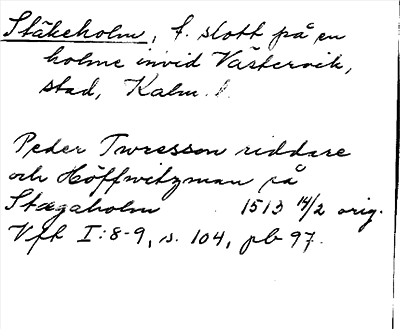 Stäkeholm, f. slott på en
holme invid Västervik,
stad, Kalm. l.
Peder Twresson riddare
och Höffwitzman på
Stægaholm 1513 14/2 orig.
Vfk I:8-9, s. 104, pb 97.